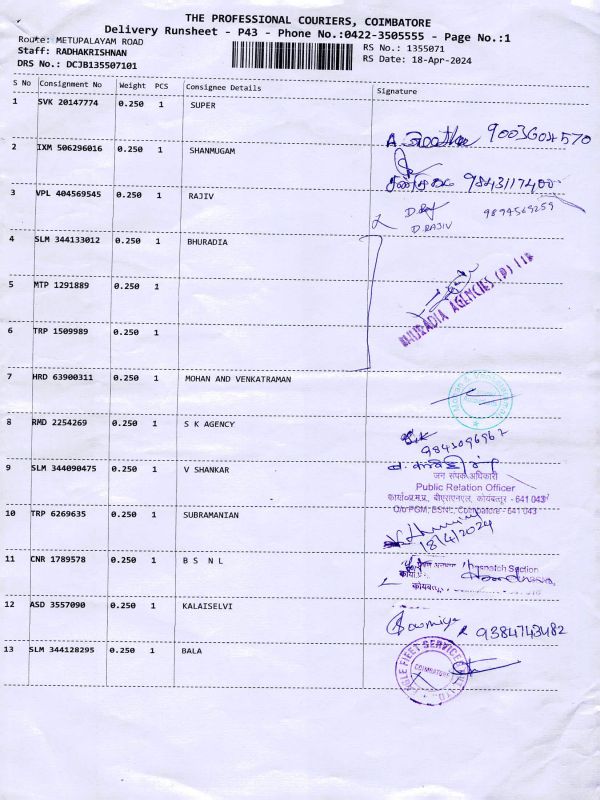 THE PROFESSIONAL COURIERS, COIMBATORE
Delivery Runsheet - P43 - Phone No.:0422-3505555 - Page No.:1
Route: METUPALAYAM ROAD
RS No.: 1355071
Staff: RADHAKRISHNAN
RS Date: 18-Apr-2024
DRS No.: DCJB135507101
S No Consignment No Weight PCS Consignee Details Signature
1 SVK 20147774 0.250 1 SUPER
A. 9003604570
2 IXM 506296016 0.250 1 SHANMUGAM
9843117400
3 VPL 404569545 0.250 1 RAJIV
D.Raj 9894569259
D.RAJIV
4 SLM 344133012 0.250 1 BHURADIA
BHURADIA AGENCIES (P) Ltd
5 MTP 1291889 0.250 1
6 TRP 1509989 0.250 1
7 HRD 63900311 0.250 1 MOHAN AND VENKATRAMAN
8 RMD 2254269 0.250 1 S K AGENCY
9843096962
9 SLM 344090475 0.250 1 V SHANKAR
जन संपर्क अधिकारी
Public Relation Officer
कार्या.प्र.म.प्र., बीएसएनएल, कोयंबत्तूर - 641 043
O/o PGM, BSNL, Coimbatore - 641 043
10 TRP 6269635 0.250 1 SUBRAMANIAN
18/4/2024
11 CNR 1789578 0.250 1 B S N L
Despatch Section
12 ASD 3557090 0.250 1 KALAISELVI
Sowmiya 9384743482
13 SLM 344128295 0.250 1 BALA
EAGLE FLEET SERVICE
COIMBATORE